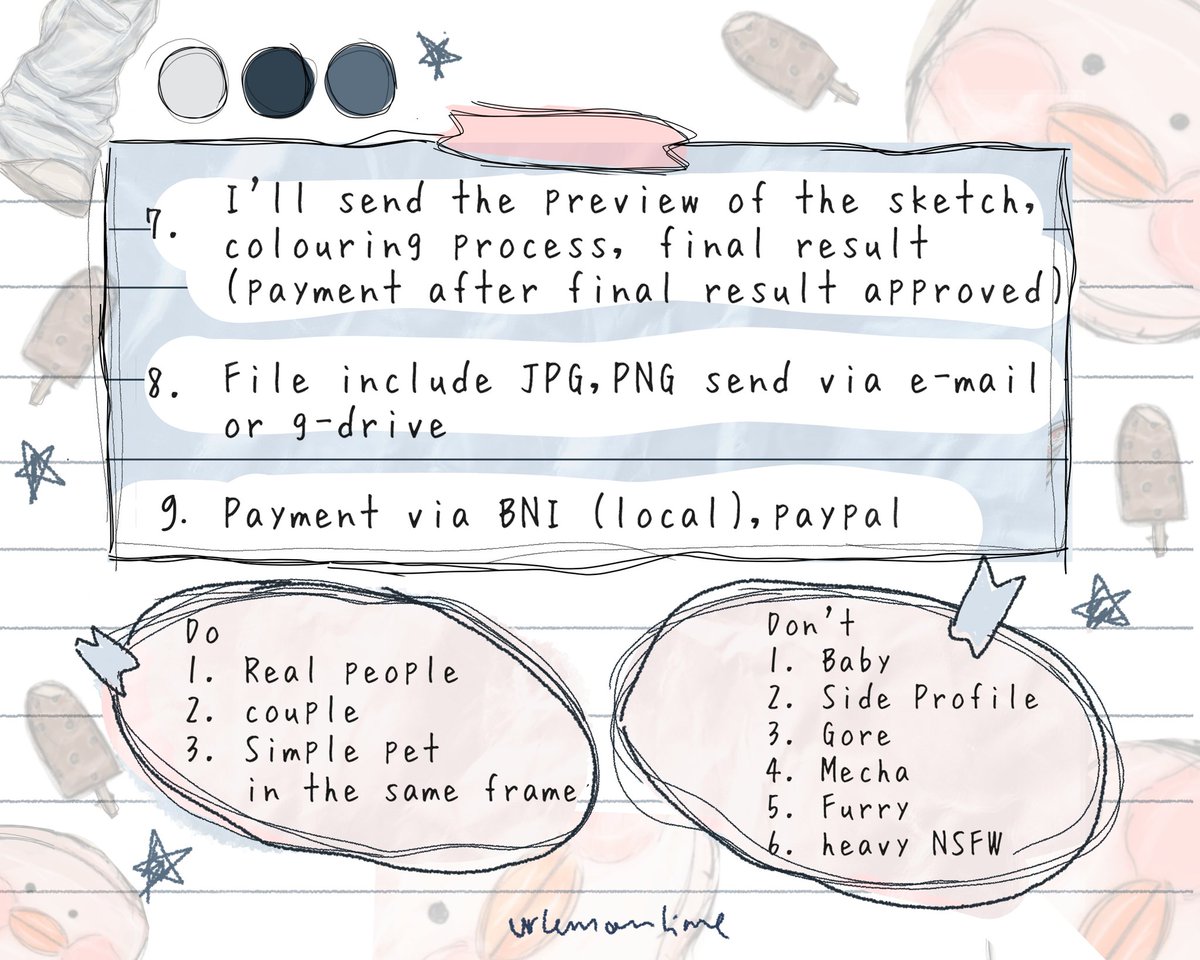 7. I'll send the preview of the sketch,
colouring process, final result
(payment after final result approved)
8. File include JPG,PNG send via e-mail
or g-drive
9. Payment via BNI (local),paypal
Do
1. Real people
2. couple
3. Simple pet
in the same frame
Don't
1. Baby
2. Side Profile
3. Gore
4. Mecha
5. Furry
6. heavy NSFW